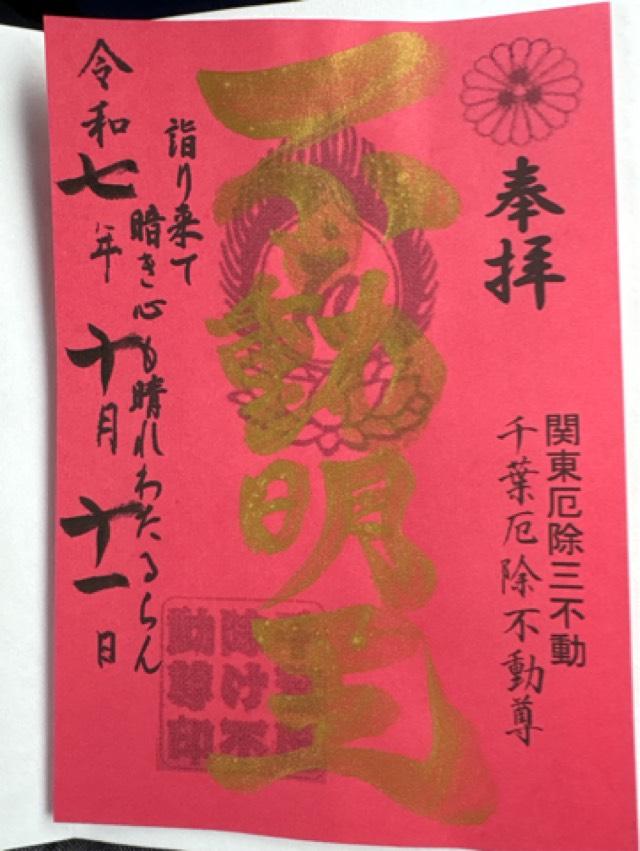 奉拝
関東厄除三不動
千葉厄除不動尊
不動明王
詣り来て
暗き心も晴れわたるらん
令和七年十月十一日